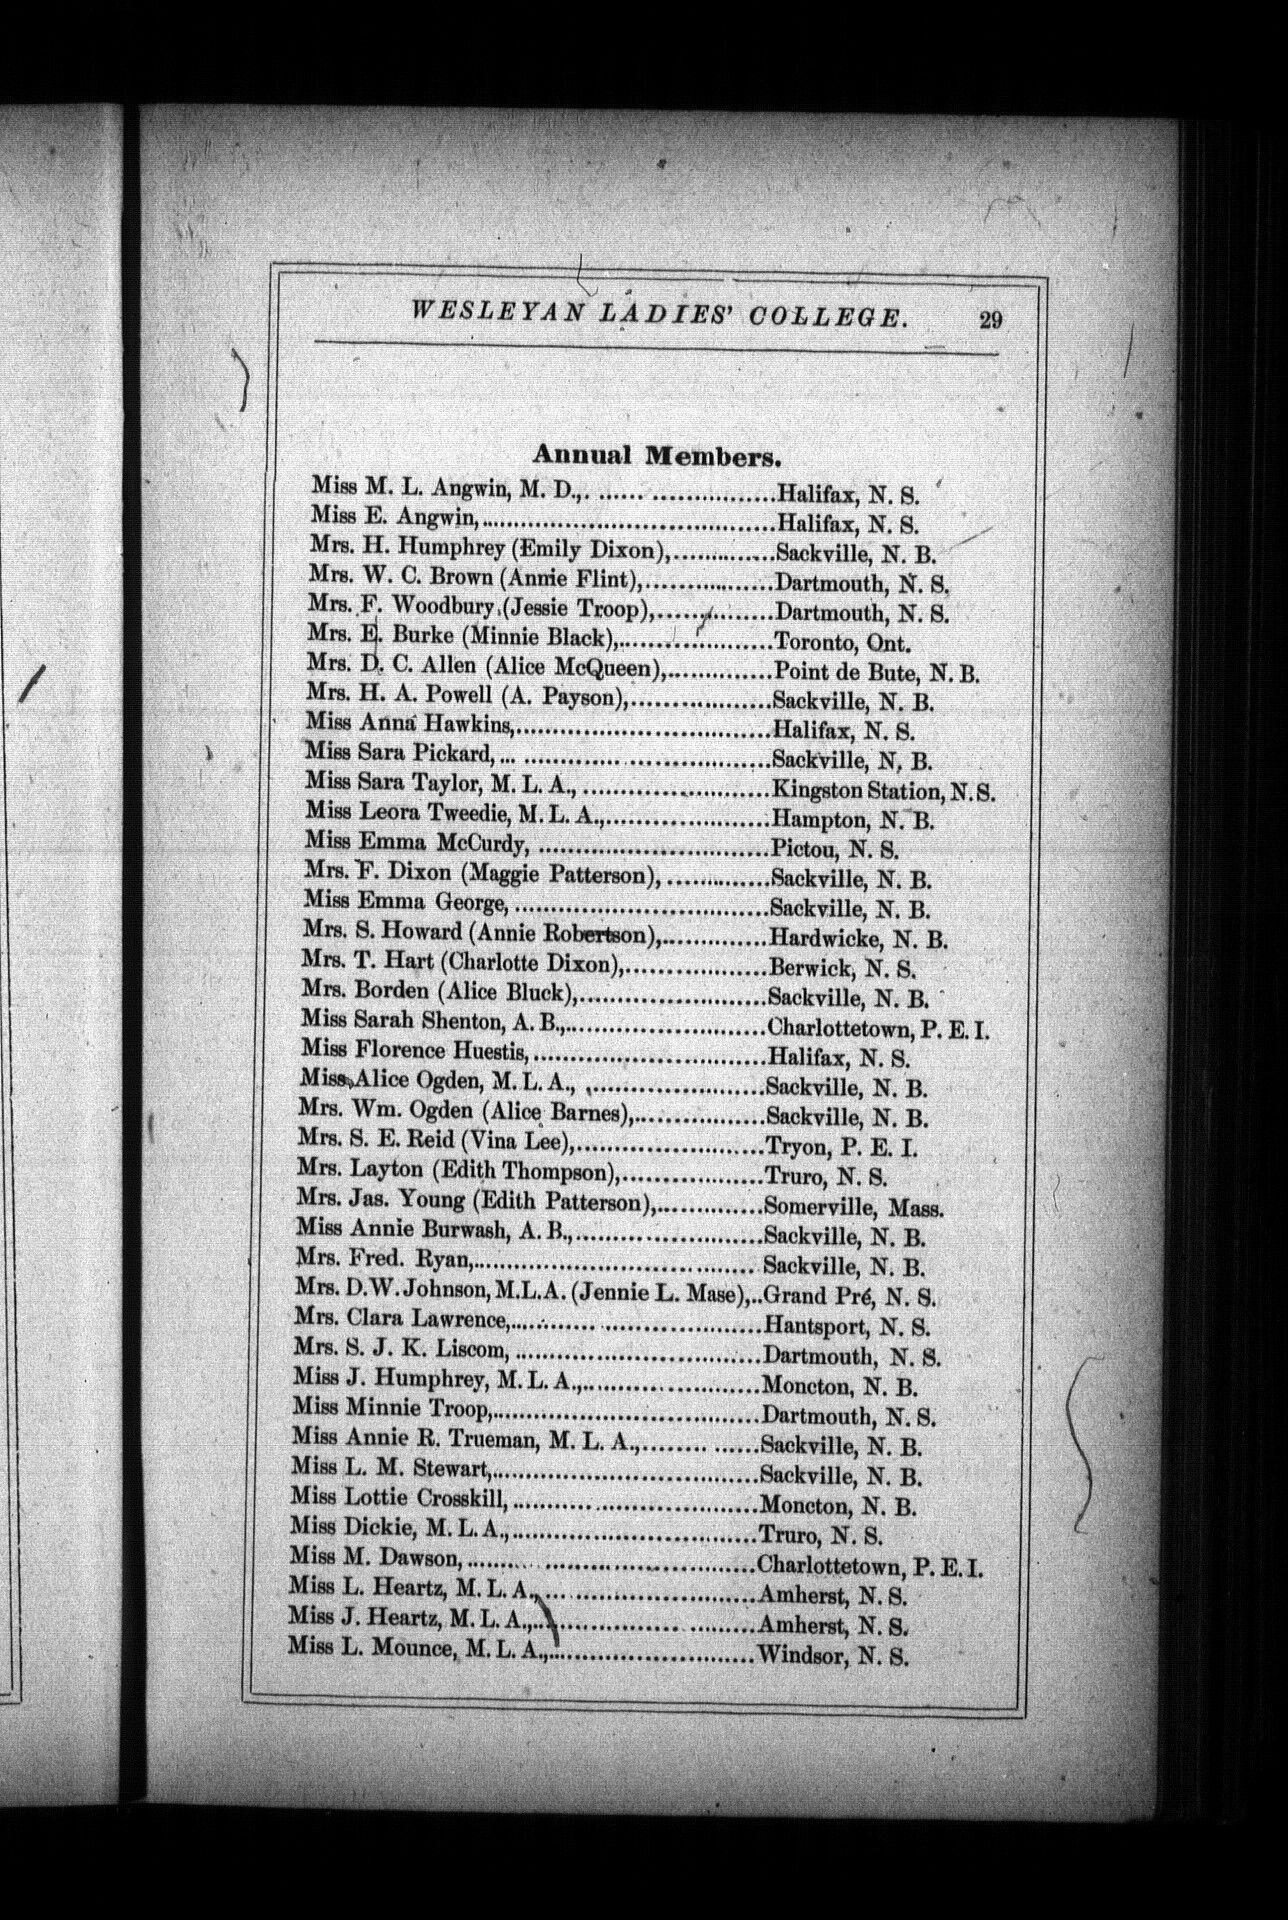 WESLEYAN LADIES' COLLEGE. 29
Annual Members.
Miss M. L. Angwin, M. D.,. ...... ................Halifax, N. S.
Miss E. Angwin,......................................Halifax, N. S.
Mrs. H. Humphrey (Emily Dixon),.............Sackville, N. B.
Mrs. W. C. Brown (Annie Flint),................Dartmouth, N. S.
Mrs. F. Woodbury (Jessie Troop),...............Dartmouth, N. S.
Mrs. E. Burke (Minnie Black),....................Toronto, Ont.
Mrs. D. C. Allen (Alice McQueen),..............Point de Bute, N. B.
Mrs. H. A. Powell (A. Payson),..................Sackville, N. B.
Miss Anna Hawkins,................................Halifax, N. S.
Miss Sara Pickard,... ...............................Sackville, N. B.
Miss Sara Taylor, M. L. A., .......................Kingston Station, N. S.
Miss Leora Tweedie, M. L. A.,.....................Hampton, N. B.
Miss Emma McCurdy, .............................Pictou, N. S.
Mrs. F. Dixon (Maggie Patterson), .............Sackville, N. B.
Miss Emma George, ................................Sackville, N. B.
Mrs. S. Howard (Annie Robertson),..............Hardwicke, N. B.
Mrs. T. Hart (Charlotte Dixon),..................Berwick, N. S.
Mrs. Borden (Alice Bluck),........................Sackville, N. B.
Miss Sarah Shenton, A. B.,.........................Charlottetown, P. E. I.
Miss Florence Huestis, .............................Halifax, N. S.
Miss Alice Ogden, M. L. A., ......................Sackville, N. B.
Mrs. Wm. Ogden (Alice Barnes),.................Sackville, N. B.
Mrs. S. E. Reid (Vina Lee),........................Tryon, P. E. I.
Mrs. Layton (Edith Thompson),..................Truro, N. S.
Mrs. Jas. Young (Edith Patterson),..............Somerville, Mass.
Miss Annie Burwash, A. B.,........................Sackville, N. B.
Mrs. Fred. Ryan,................................... Sackville, N. B.
Mrs. D.W. Johnson, M.L.A. (Jennie L. Mase),..Grand Pré, N. S.
Mrs. Clara Lawrence,...............................Hantsport, N. S.
Mrs. S. J. K. Liscom, ...............................Dartmouth, N. S.
Miss J. Humphrey, M. L. A.,......................Moncton, N. B.
Miss Minnie Troop,..................................Dartmouth, N. S.
Miss Annie R. Trueman, M. L. A.,........ ......Sackville, N. B.
Miss L. M. Stewart,..................................Sackville, N. B.
Miss Lottie Crosskill, ...............................Moncton, N. B.
Miss Dickie, M. L. A.,...............................Truro, N. S.
Miss M. Dawson,....................................Charlottetown, P. E. I.
Miss L. Heartz, M. L. A.,...........................Amherst, N. S.
Miss J. Heartz, M. L. A.,............................Amherst, N. S.
Miss L. Mounce, M. L. A.,..........................Windsor, N. S.